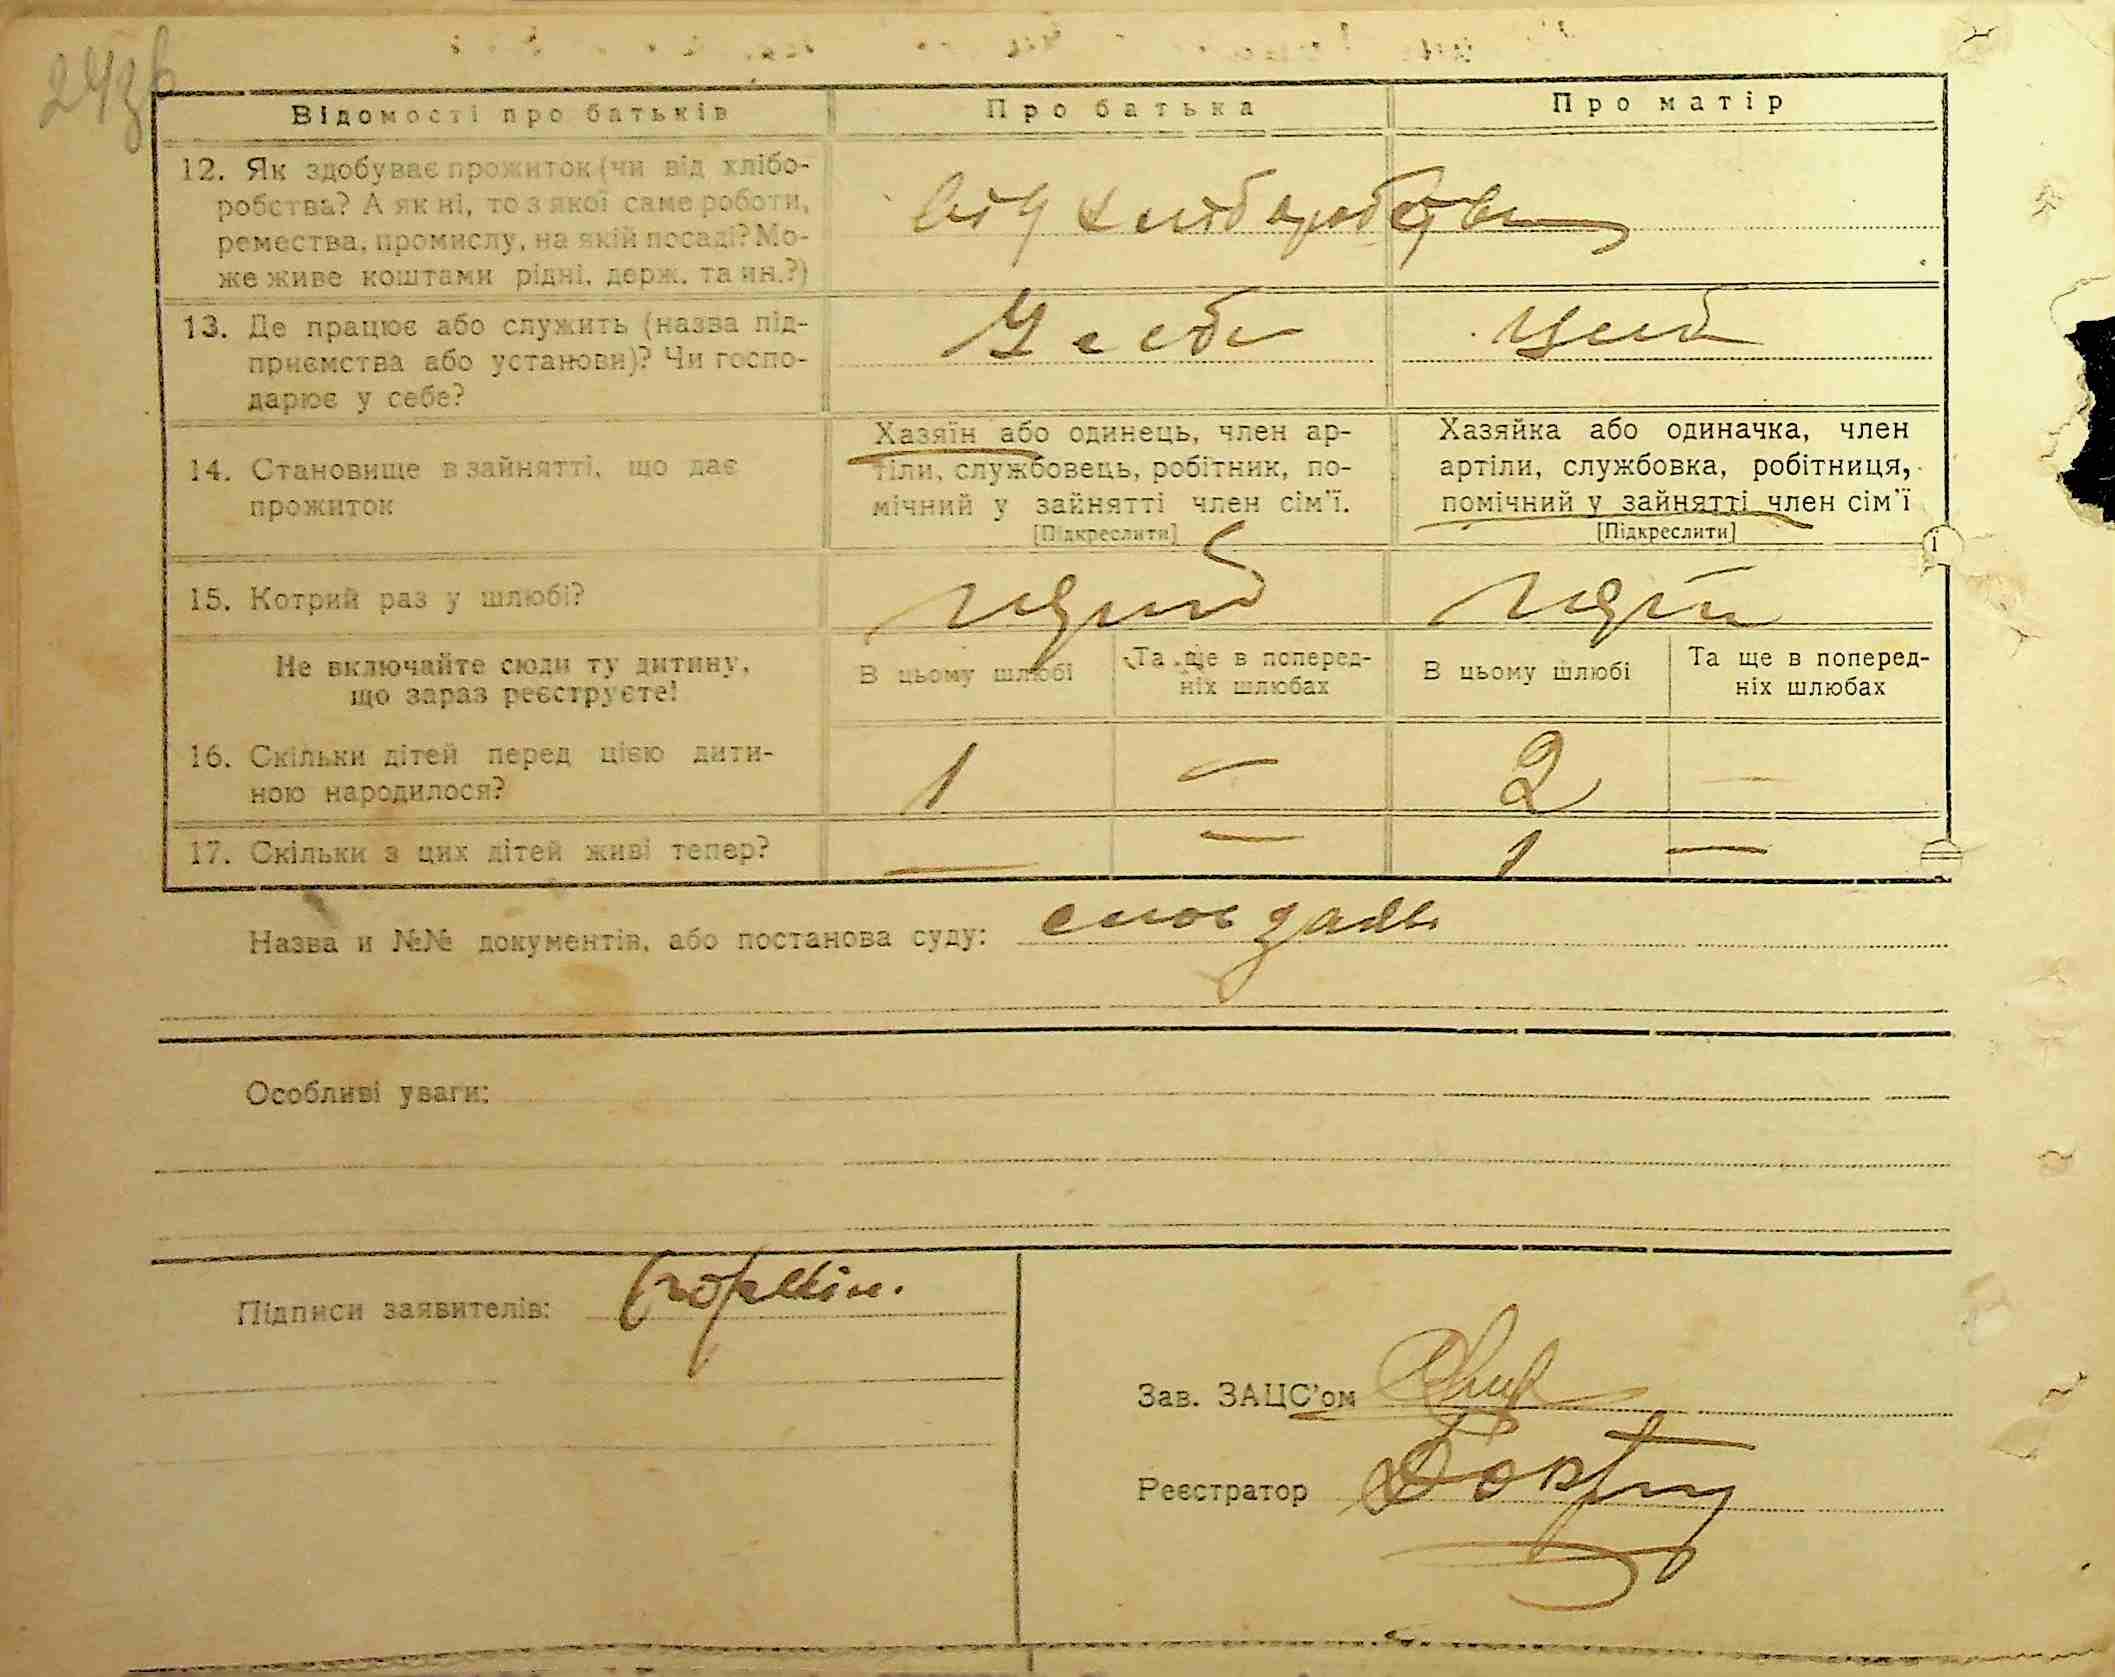 243б
Відомості про батьків
Про батька
Про матір
12. Як здобуває прожиток (чи від хлібо-
робства? А як ні, то з якої саме роботи,
ремества, промислу, на якій посаді? Мо-
же живе коштами рідні, держ. та ин.?)
від хліборобства
13. Де працює або служить (назва під-
приємства або установи)? Чи госпо-
дарює у себе?
У себе
14. Становище в зайнятті, що дає
прожиток
Хазяїн або одинець, член ар-
тіли, службовець, робітник, по-
мічний у зайнятті член сім'ї.
[Підкреслити]
Хазяйка або одиначка, член
артіли, службовка, робітниця,
помічний у зайнятті член сім'ї
[Підкреслити]
15. Котрий раз у шлюбі?
Не включайте сюди ту дитину,
що зараз реєструєте!
В цьому шлюбі
Та ще в поперед-
ніх шлюбах
В цьому шлюбі
Та ще в поперед-
ніх шлюбах
16. Скільки дітей перед цією дити-
ною народилося?
1 — 2 —
17. Скільки з цих дітей живі тепер?
— — 1 —
Назва и №№ документів, або постанова суду:
Особливі уваги:
Підписи заявителів:
Зав. ЗАЦС'ом
Реєстратор